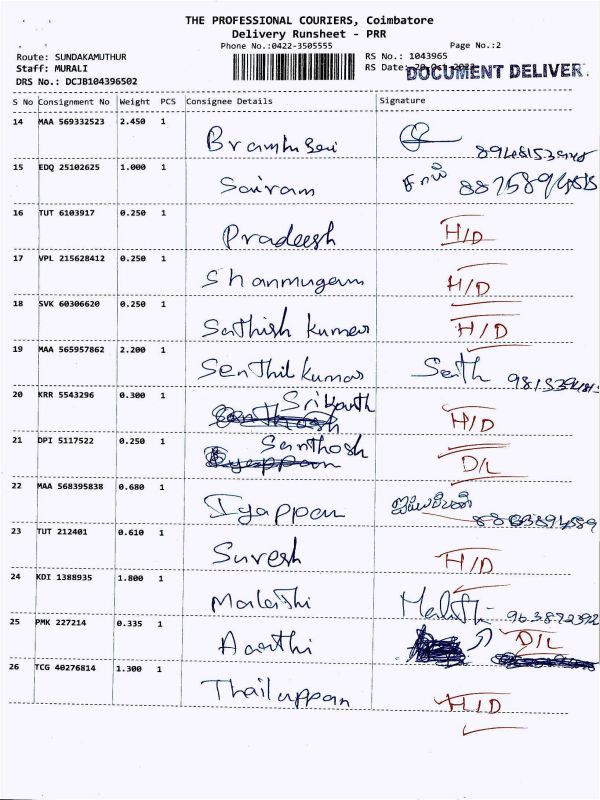 THE PROFESSIONAL COURIERS, Coimbatore
Delivery Runsheet - PRR
Phone No.:0422-3505555 Page No.:2
Route: SUNDAKAMUTHUR RS No.: 1043965
Staff: MURALI RS Date:
DRS No.: DCJB104396502 DOCUMENT DELIVER.
S No Consignment No Weight PCS Consignee Details Signature
14 MAA 569332523 2.450 1
15 EDQ 25102625 1.000 1 Sairam சாய்
16 TUT 6103917 0.250 1 Pradeesh H/D
17 VPL 215628412 0.250 1 Shanmugam H/D
18 SVK 60306620 0.250 1 Sathish Kumar H/D
19 MAA 565957862 2.200 1 Senthil Kumar
20 KRR 5543296 0.300 1 Srikanth H/D
21 DPI 5117522 0.250 1 Santhosh D/L
22 MAA 568395838 0.680 1 Iyappan
23 TUT 212401 0.610 1 Suresh H/D
24 KDI 1388935 1.800 1 Malathi
25 PMK 227214 0.335 1 Aarthi D/L
26 TCG 40276814 1.300 1 Thailappan H/D